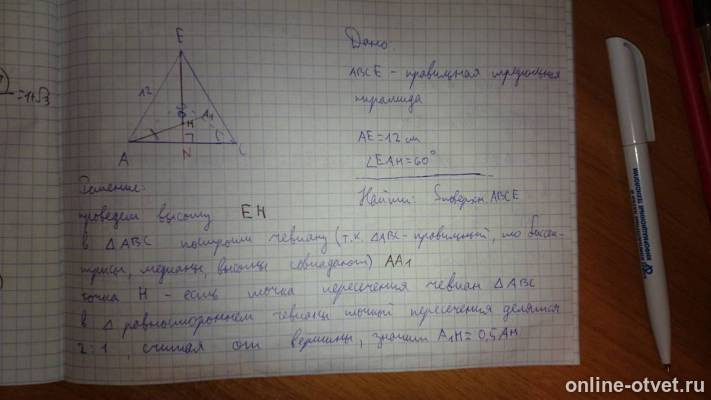 =1+√3
E
12
H
A₁
A
N
C
Дано
ABCE - правильная треугольная
пирамида
AE=12 см
∠EAH=60°
Найти: Sповерхн. ABCE
Решение:
проведем высоту EH
в △ABC построим чевиану (т.к. △ABC - правильный, то биссек-
трисы, медианы, высоты совпадают) AA₁
точка H - есть точка пересечения чевиан △ABC
в △ равностороннем чевианы точкой пересечения делятся
2:1, считая от вершины, значит A₁H=0,5AH
ИНФОРМАЦИОННЫЕ ТЕХНОЛОГИИ
online-otvet.ru